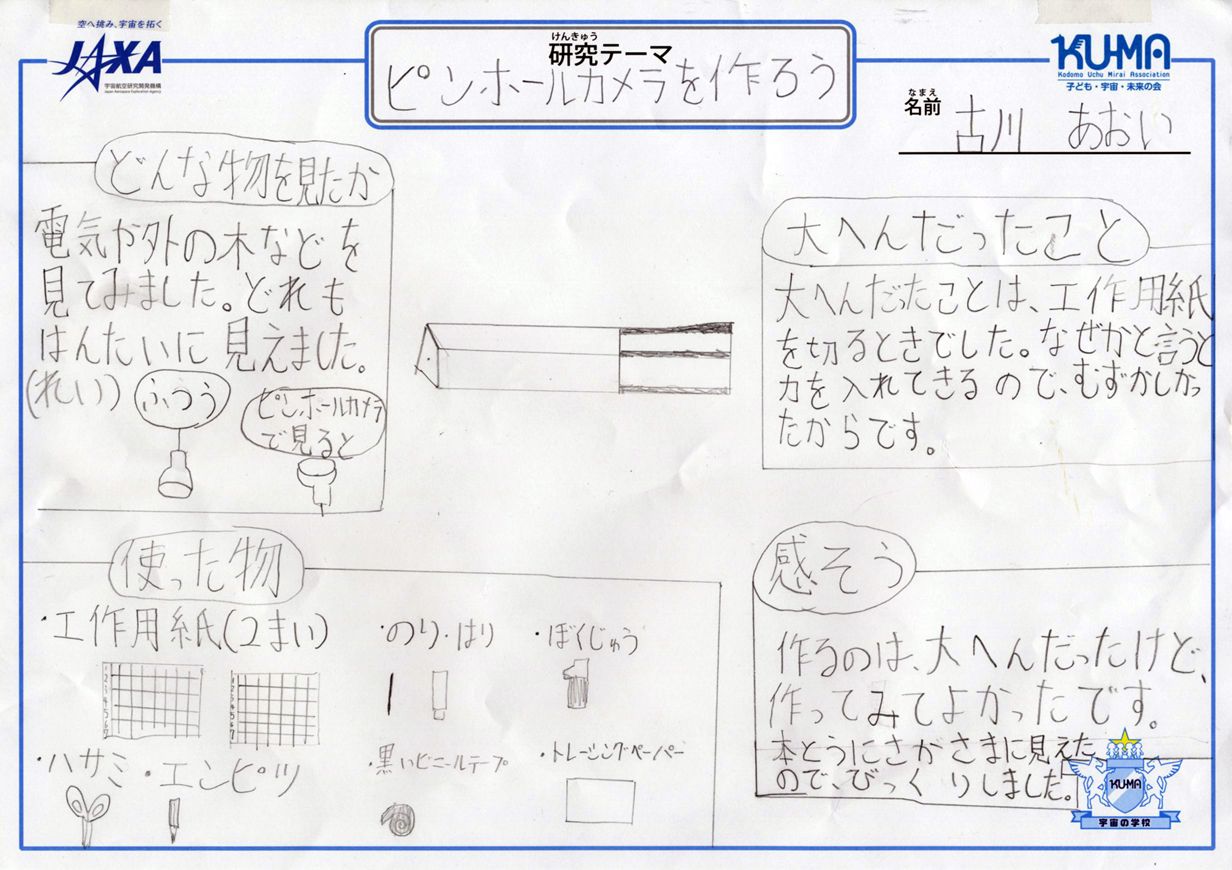 空へ挑み、宇宙を拓く
JAXA
宇宙航空研究開発機構
Japan Aerospace Exploration Agency
けんきゅう
研究テーマ
ピンホールカメラを作ろう
KU-MA
Kodomo Uchu Mirai Association
子ども・宇宙・未来の会
なまえ
名前
古川 あおい
どんな物を見たか
電気や外の木などを
見てみました。どれも
はんたいに見えました。
(れい)
ふつう
ピンホールカメラ
で見ると
大へんだったこと
大へんだったことは、工作用紙
を切るときでした。なぜかと言うと
力を入れてきるので、むずかしかっ
たからです。
使った物
・工作用紙(2まい)
・のり・はり
・ぼくじゅう
・ハサミ・エンピツ
・黒いビニールテープ
・トレーシングペーパー
感そう
作るのは、大へんだったけど、
作ってみてよかったです。
本とうにさかさまに見えた
ので、びっくりしました。
KUMA
宇宙の学校